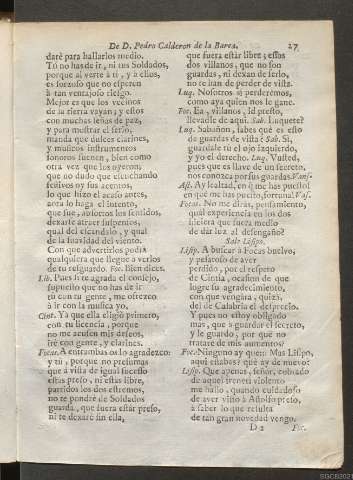 De D. Pedro Calderon de la Barca. 27
darè para hallarlos medio.
Tù no has de ir, ni tus Soldados,
porque al verte à ti, y à ellos,
es forzoso que no esperen
à tan ventajoso riesgo.
Mejor es que los vecinos
de la tierra vayan; y estos
con muchas señas de paz,
y para mostrar el serlo,
manda que dulces clarines,
y musicos instrumentos
sonoros suenen, bien como
otra vez que los oyeron;
que no dudo que escuchando
festivos oy sus acentos,
lo que hizo el acaso antes,
aora lo haga el intento,
que fue, absortos los sentidos,
dexarse atraer suspensos,
qual del escandalo, y qual
de la suavidad del viento.
Con que advertirlos podrà
qualquiera que llegue à verlos
de tu resguardo. Foc. Bien dices.
Lib. Pues te agrada el consejo,
supuesto que no has de ir
tu con tu gente, me ofrezco
à ir con la musica yo.
Cint. Ya que ella eligiò primero,
con tu licencia, porque
no me acusen mis deseos,
irè con gente, y clarines.
Focas. A entrambas os lo agradezco:
y tù, porque no presumas
que à vista de igual sucesso
estàs preso, ni estàs libre,
partidos los dos estremos,
no te pondrè de Soldados
guarda, que fuera estàr preso,
ni te dexarè sin ella,
que fuera estàr libre; essas
dos villanos, que no son
guardas, ni dexan de serlo,
no te han de perder de vista.
Luq. Nosotros sì perderèmos,
como aya quien nos le gane.
Foc. Ea, villanos, id presto,
llevadle de aqui. Sab. Luquete?
Luq. Sabañon, sabes què es esto
de guardas de vista? Sab. Si,
guardale tu el ojo izquierdo,
y yo el derecho. Luq. Vusted,
pues que es llave de un secreto,
nos conozca por sus guardas. Vans.
Ast. Ay lealtad, en què me has puesto!
en què me has puesto, fortuna! Vas.
Focas. No me diràs, pensamiento,
qual experiencia en los dos
hiciera que fuera medio
de dàr luz al desengaño?
Sale Lisipo.
Lisip. A buscar à Focas buelvo,
y pesaroso de aver
perdido, por el respeto
de Cintia, ocasion de que
logre su agradecimiento,
con que vengàra, quizà,
del de Calabria el desprecio.
Y pues no estoy obligado
mas, que à guardar el secreto,
y le guardo, por què no
tratare de mis aumentos?
Foc. Ninguno ay quien: Mas Lisipo,
aqui estabas? què ay de nuevo?
Lisip. Que apenas, señor, cobrado
de aquel frenesì violento
me hallo, quando cuidadoso
de aver visto à Astolfo preso,
à saber lo que resulta
de tan gran novedad vengo.
D 2 Foc.